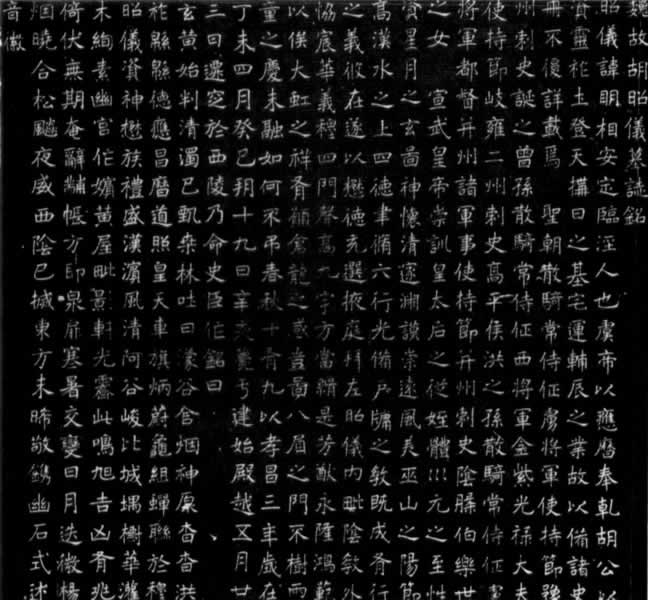 魏故胡昭儀墓誌銘
昭儀諱明相安定臨涇人也虞帝以應曆奉乹胡公以
資靈祚土登天構日之基宅運輔辰之業故以備諸史
冊不復詳載焉 聖朝散騎常侍征虜將軍使持節豫
州刺史誕之曾孫散騎常侍征西將軍金紫光祿大夫
使持節岐雍二州刺史高平侯洪之孫散騎常侍征
將軍都督并州諸軍事使持節并州刺史陰槃伯樂世
之女 宣武皇帝崇訓皇太后之從姪體 元之至性
資星月之玄啚神懷清邃淵謨崇遠風美巫山之陽節
高漢水之上四德聿脩六行光備戶牖之教既成 行
之義攸在遂以懋德充選掖庭拜左昭儀內毗陰教外
協宸華義穆四門聲藹九宇方當緝是芳猷永隆鴻範
以俟大虹之祥 願倉龍之感豈啚八眉之門不樹兩
童之慶未融如何不弔春秋十有九以孝昌三年歲在
丁未四月癸巳朔十九日辛亥薨于建始殿越五月廿
三日遷窆於西陵乃命史臣作銘曰
玄黃始判清濁已甄桒林吐日濛谷含烟神原杳杳洪
祚緜緜德應昌曆道照皇天車旗炳蔚龜組蟬聯於穆
昭儀資神懋族禮盛漢濱風清阿谷峻比城堣樹華灌
木絢素幽宮作嬪黃屋毗景軒光 此鳴旭吉凶 兆
倚伏無期奄辭黼帳方即泉扉寒暑交變日月迭微楊
烟曉合松飈夜威西陰已掩東方未晞敬鐫幽石式述
音徽